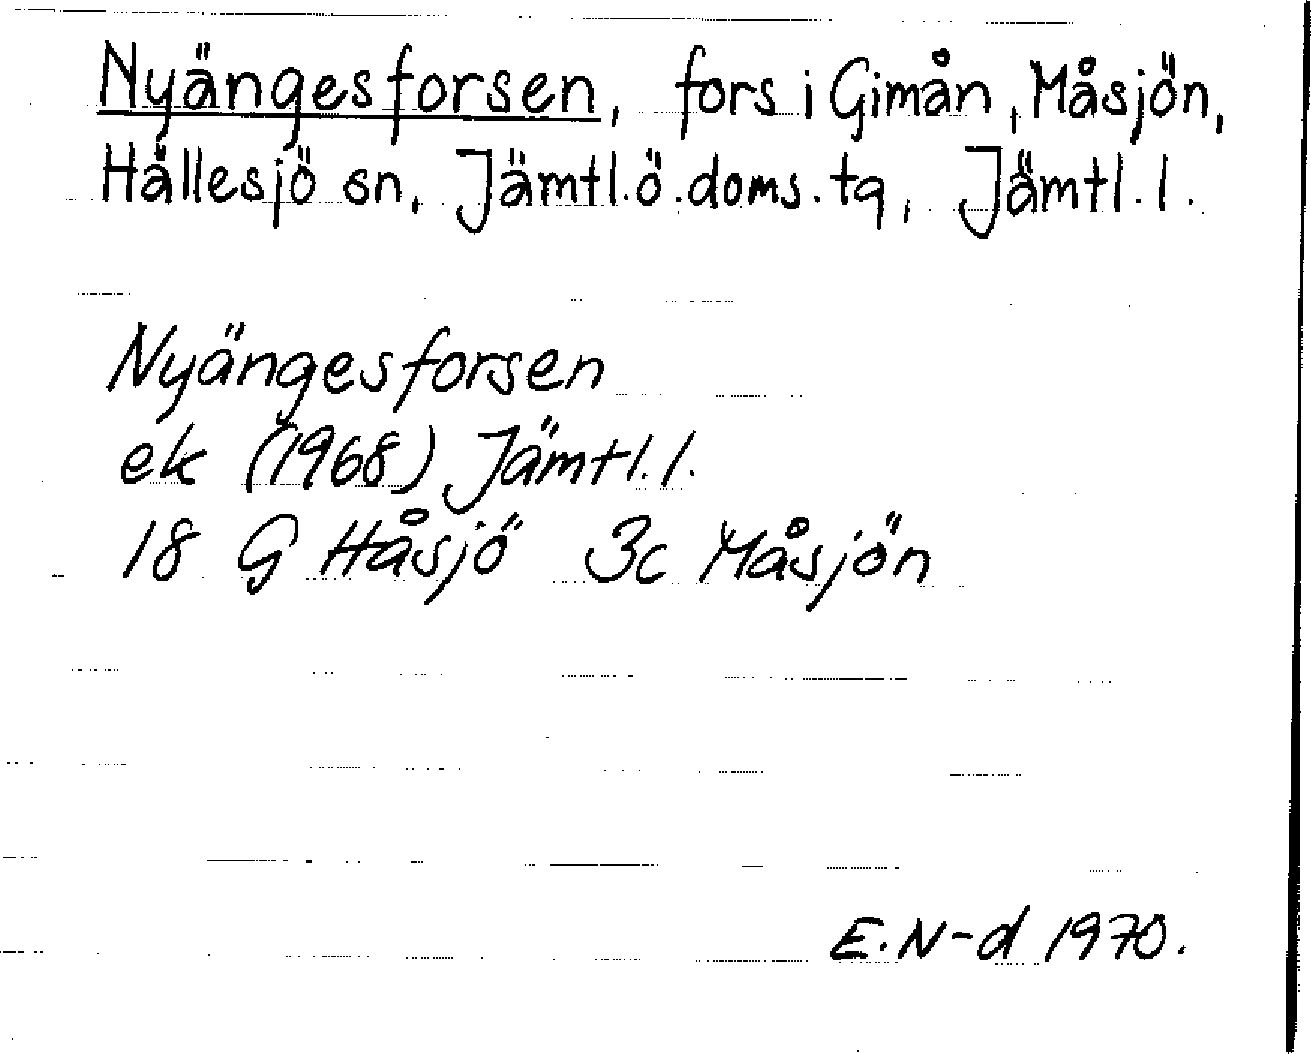 Nyängesforsen, fors i Gimån, Måsjön,
Hällesjö sn, Jämtl.ö.doms.tq, Jämtl.l.
Nyängesforsen
ek (1968) Jämtl.l.
18 G Håsjö 3c Måsjön
E.N-d 1970.